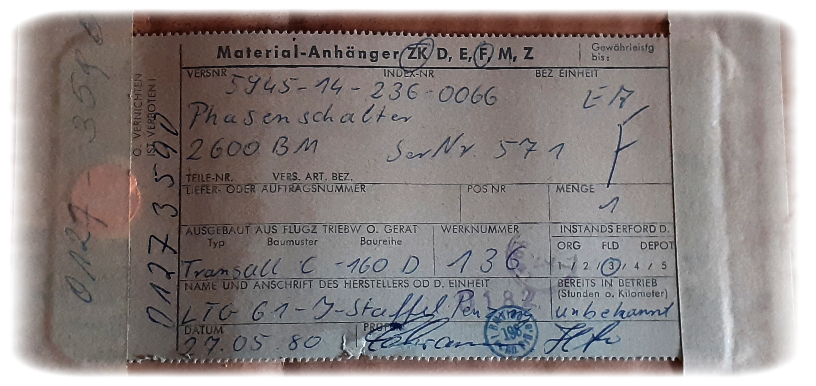 Material-Anhänger ZK D, E, F, M, Z
Gewährleistg bis:
VERSNR INDEX-NR BEZ EINHEIT
5945-14-236-0066 EA
Phasenschalter
2600 BM SerNr. 571 F
TEILE-NR. VERS. ART. BEZ.
LIEFER- ODER AUFTRAGSNUMMER POS NR MENGE
1
AUSGEBAUT AUS FLUGZ TRIEBW O. GERÄT WERKNUMMER INSTANDS ERFORD D.
Typ Baumuster Baureihe ORG FLD DEPOT
Transall C-160 D 136 1 / 2 / 3 / 4 / 5
NAME UND ANSCHRIFT DES HERSTELLERS OD D. EINHEIT BEREITS IN BETRIEB
(Stunden o. Kilometer)
LTG 61-J-Staffel Penzing unbekannt
DATUM
27.05.80
O. VERNICHTEN
IST VERBOTEN!
01273590
0127-359